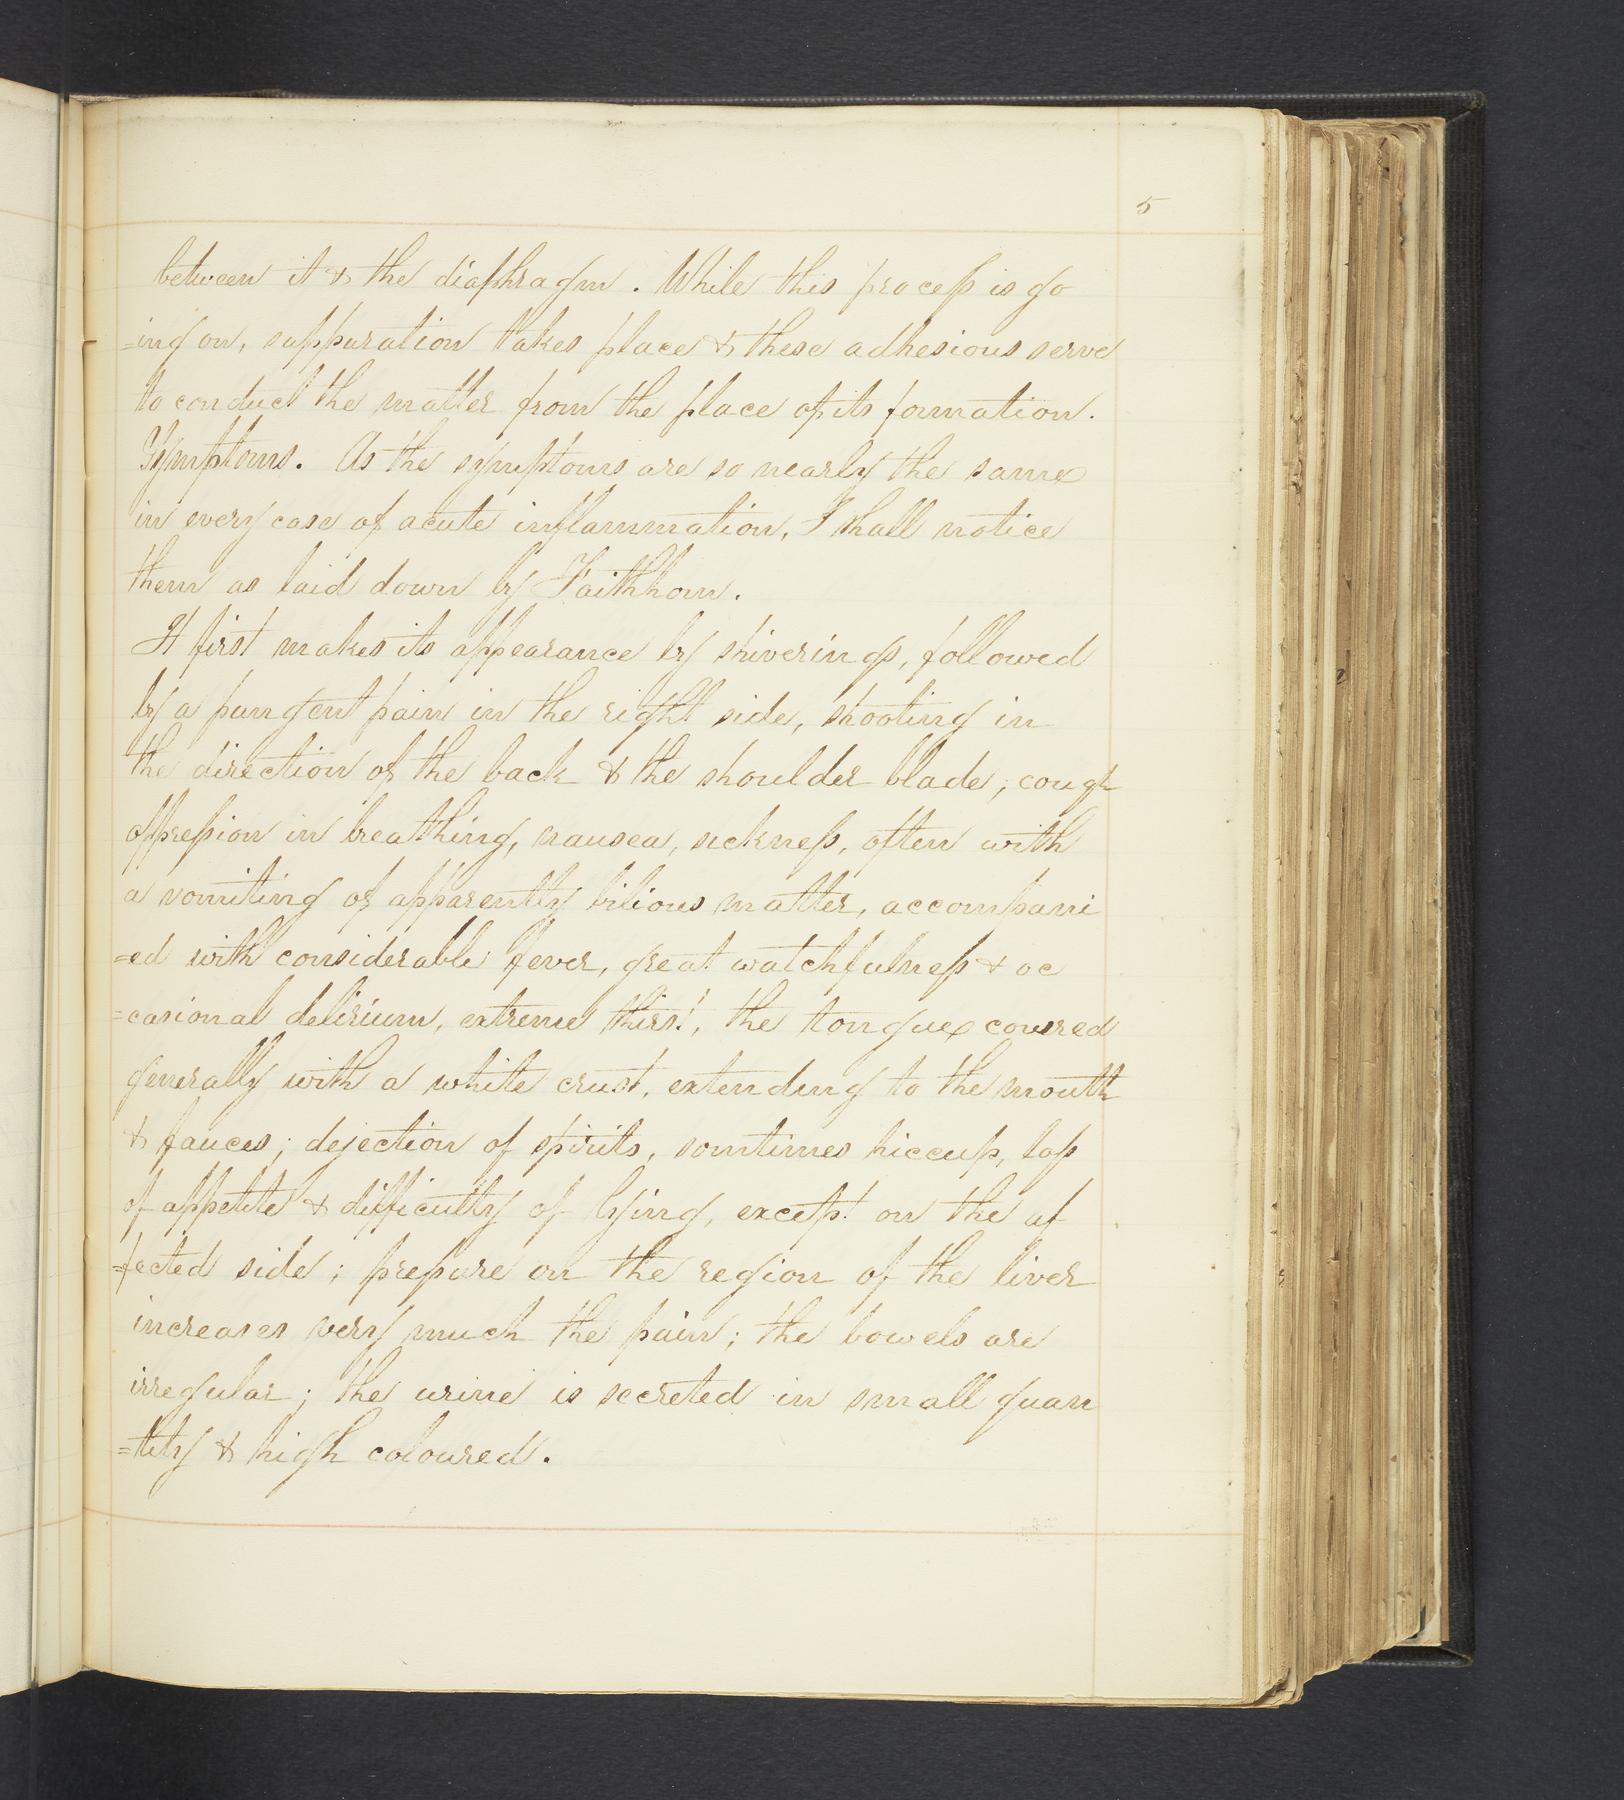 5
between it & the diaphragm. While this process is go
=ing on, suppuration takes place & these adhesions serve
to conduct the matter from the place of its formation.
Symptoms. As the symptoms are so nearly the same
in every case of acute inflammation, I shall notice
them as laid down by Faithhorn.
It first makes its appearance by shiverings, followed
by a pungent pain in the right side, shooting in
the direction of the back & the shoulder blade; cough
oppression in breathing, nausea, sickness, often with
a vomiting of apparently bilious matter, accompani
=ed with considerable fever, great watchfulness & oc
=casional delirium, extreme thirst, the tongue covered
generally with a white crust, extending to the mouth
& fauces; dejection of spirits, somtimes hiccup, loss
of appetite & difficulty of lying, except on the af
=fected side; pressure on the region of the liver
increases very much the pain; the bowels are
irregular; the urine is secreted in small quan
=tity & high coloured.